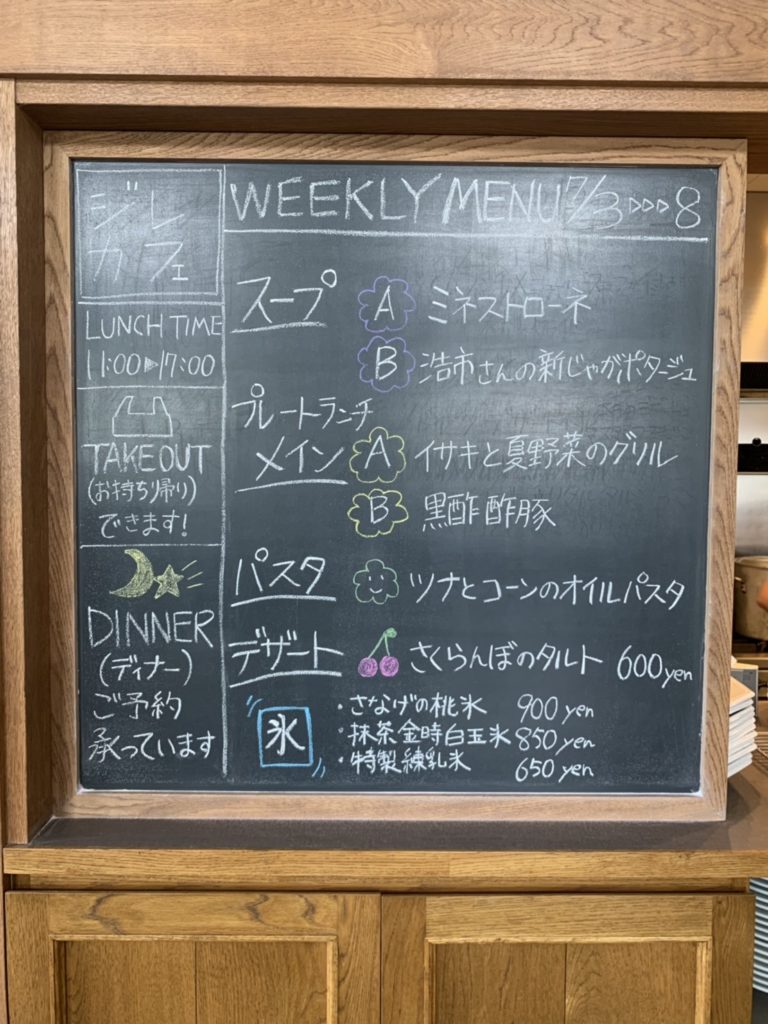 ジレ
カフェ
LUNCH TIME
11:00▶17:00
TAKEOUT
(お持ち帰り)
できます!
DINNER
(ディナー)
ご予約
承っています
WEEKLY MENU 7/3▷▷▷8
スープ A ミネストローネ
B 浩市さんの新じゃがポタージュ
プレートランチ
メイン A イサキと夏野菜のグリル
B 黒酢酢豚
パスタ ツナとコーンのオイルパスタ
デザート さくらんぼのタルト 600yen
氷 ・さなげの桃氷 900yen
・抹茶金時白玉氷 850yen
・特製練乳氷 650yen